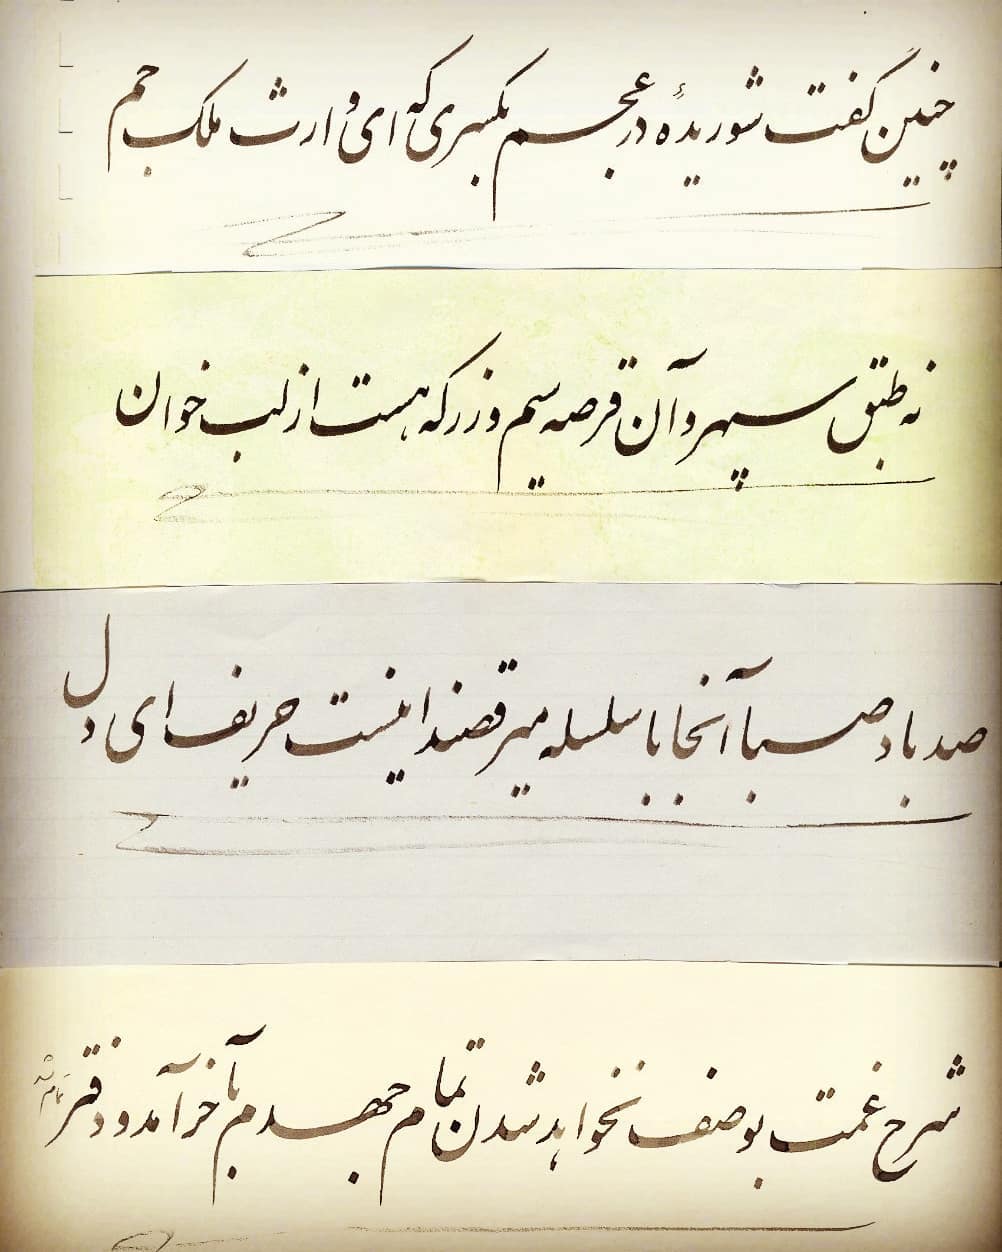 چنین گفت شوریدهٔ در عجم بکسری که ای وارث ملک جم
نه طبق سپهر و آن قرصه سیم و زر که هست از لب خوان
صد باد صبا آنجا با سلسله میرقصند اینست حریف ای دل
شرح غمت بوصف نخواهد شدن تمام جهدم بآخر آمد و دفتر تمام شد